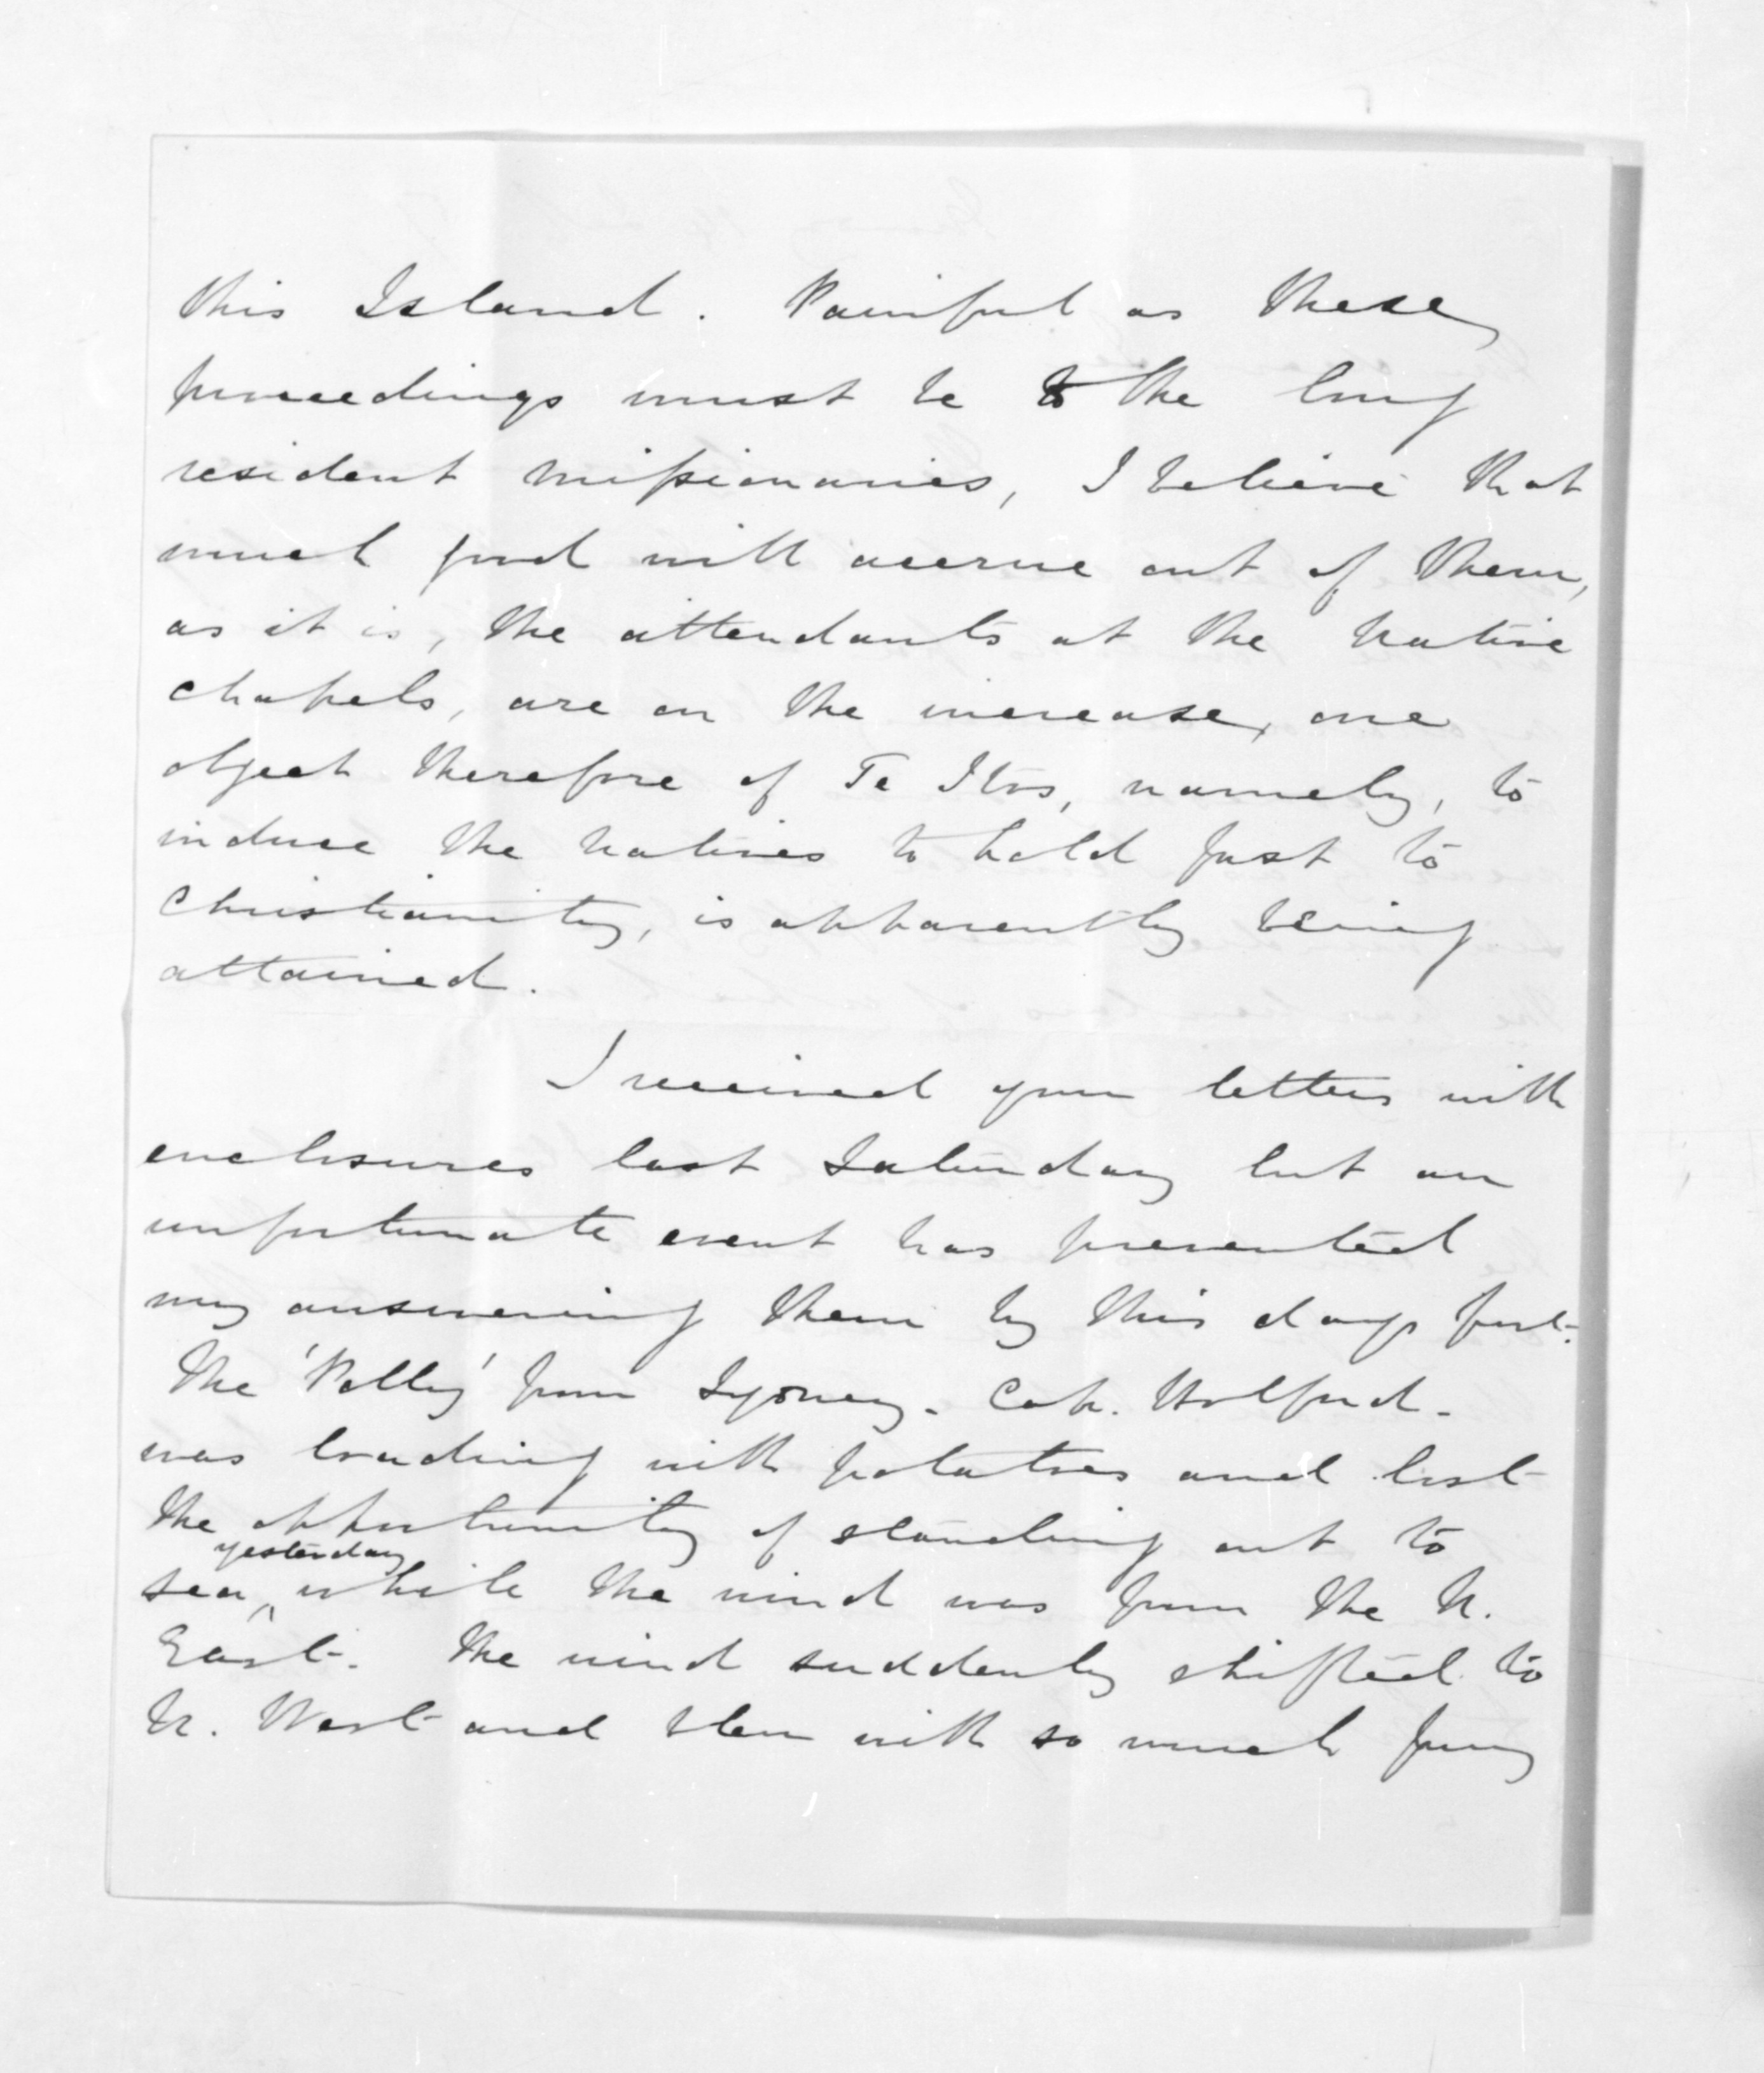 this Island. Painful as these
proceedings must be to the long
resident Missionaries, I believe that
much good will accrue out of them,
as it is, the attendants at the Native
Chapels, are on the increase, one
object therefore of Te Itos, namely, to
induce the Natives to hold fast to
Christianity, is apparently being
attained.
I received your letters with
enclosures last Saturday but an
unfortunate event has prevented
my answering them by this days post.
The 'Polly' from Sydney. Cap. Holford.
was loading with potatoes and lost
the opportunity of standing out to
yesterday
sea, while the wind was from the N.
East. The wind suddenly shifted to
N. West and blew with so much fury